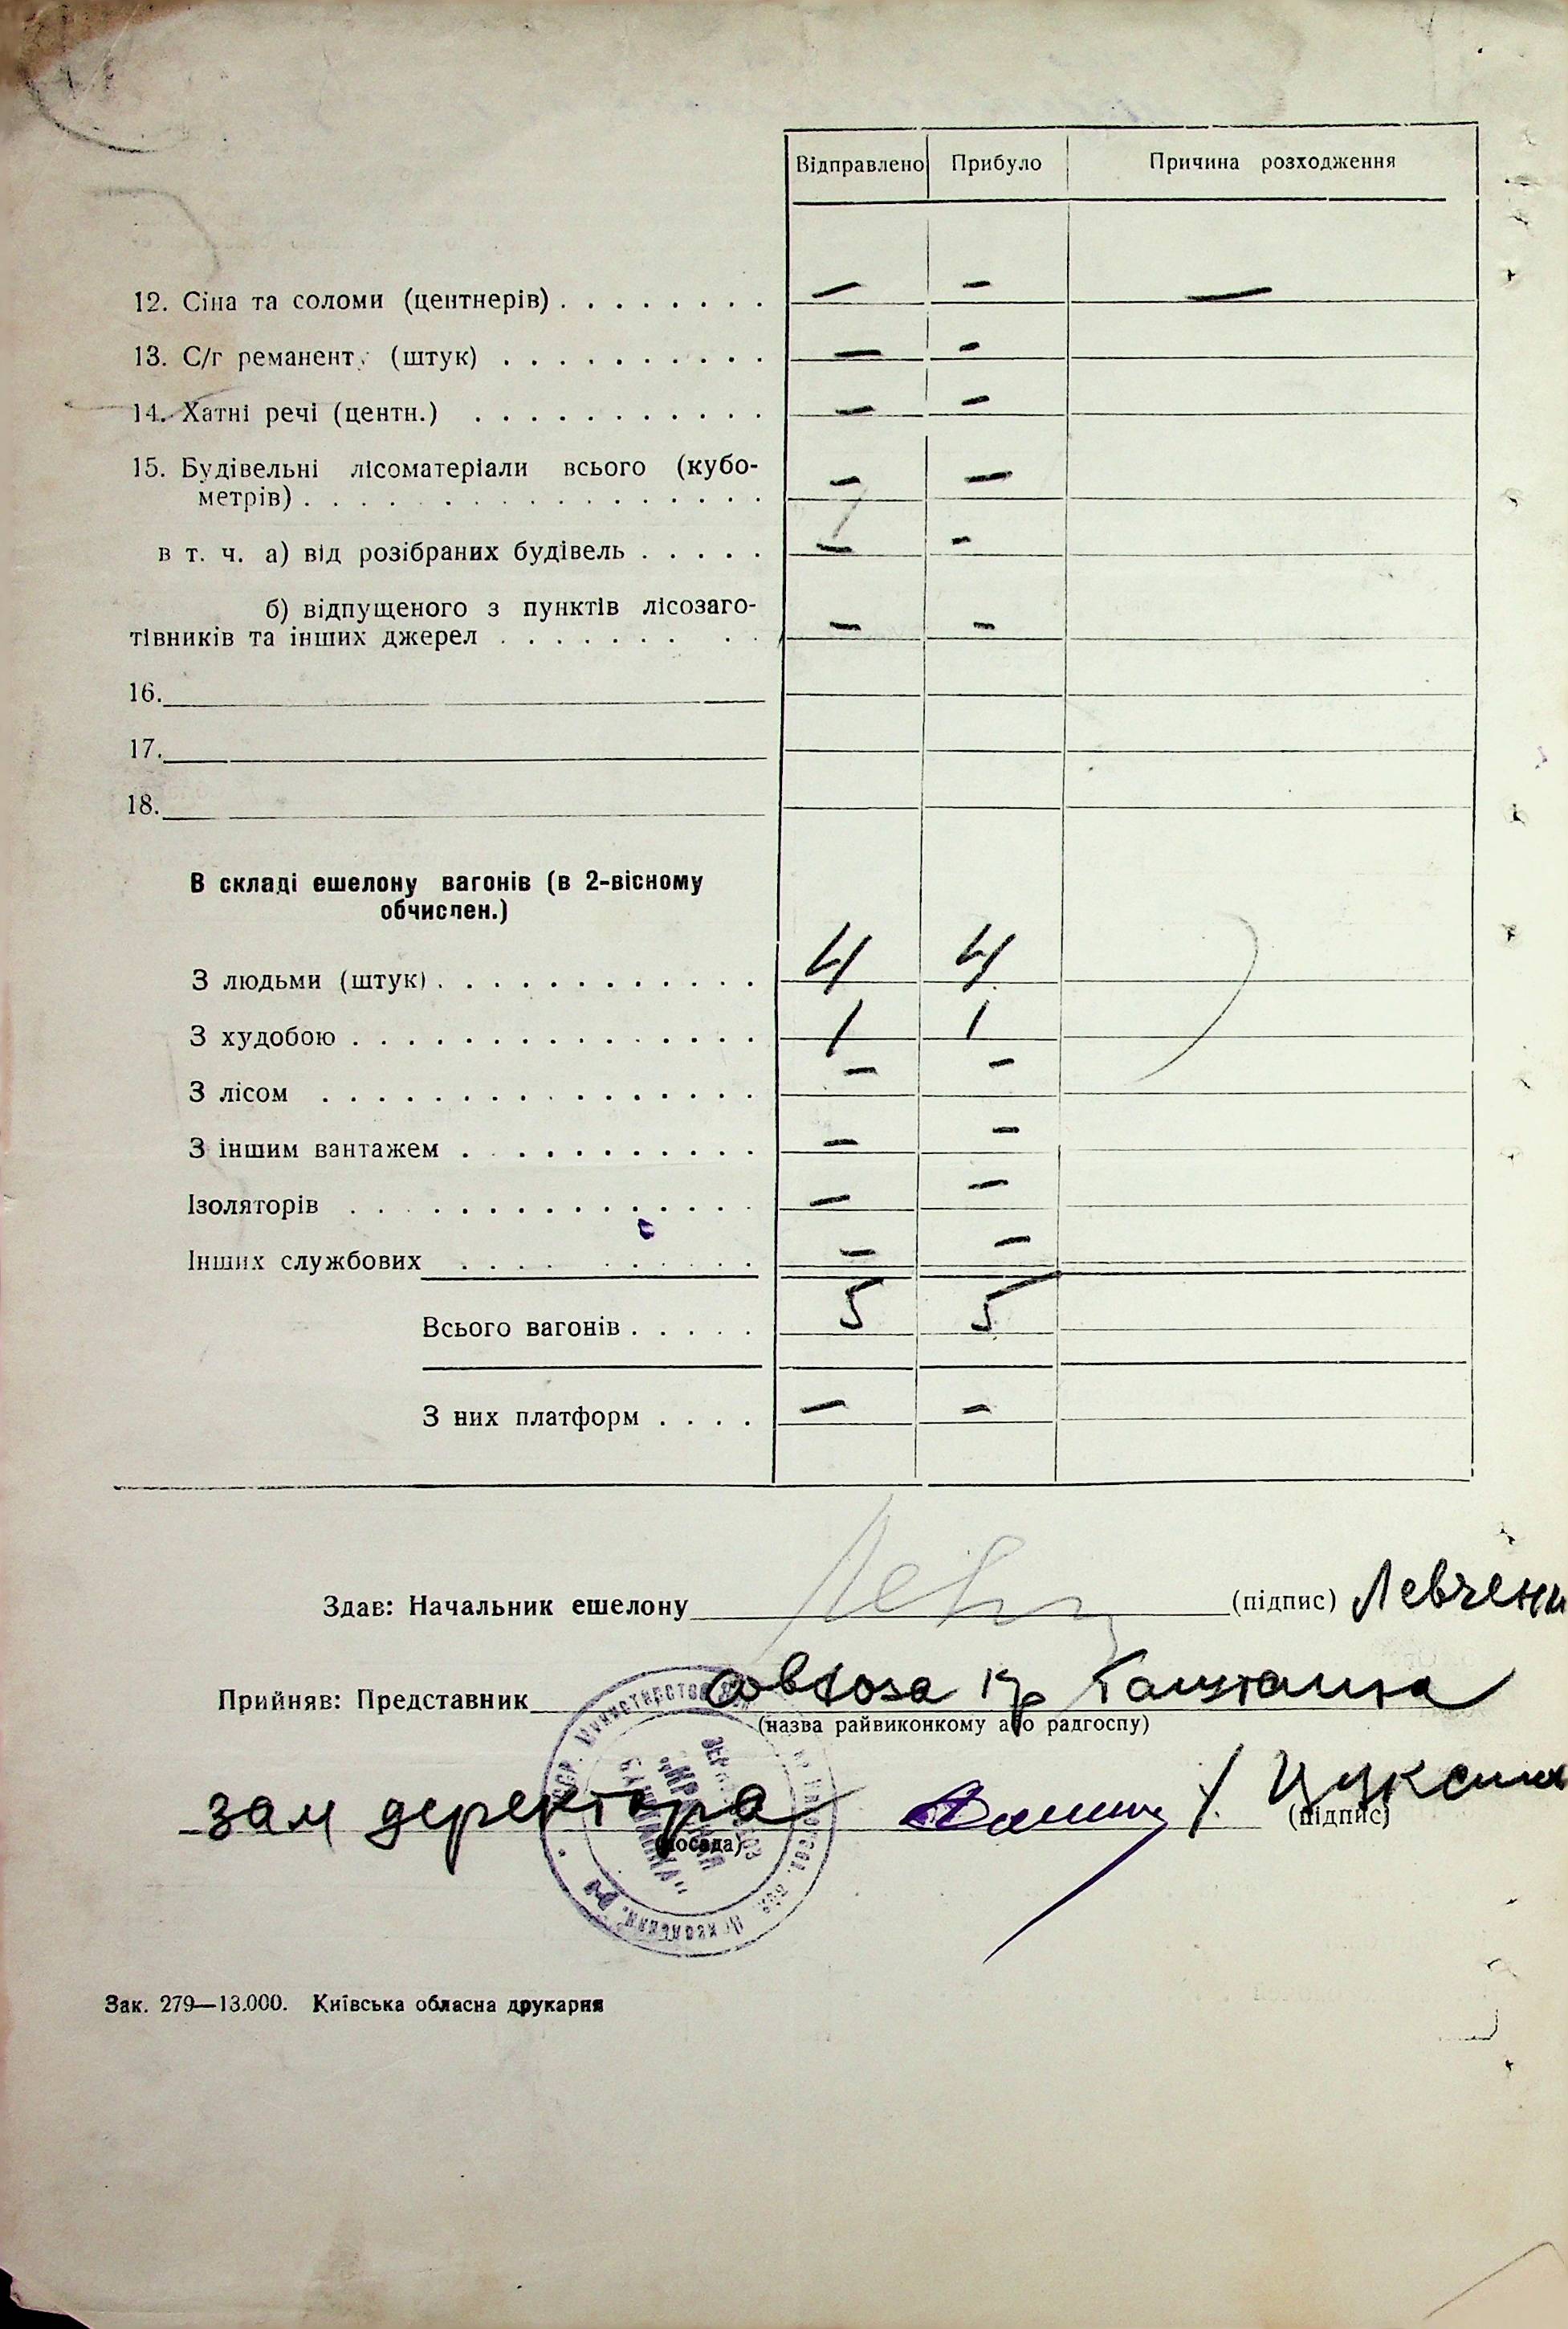 Відправлено Прибуло Причина розходження
12. Сіна та соломи (центнерів) . . . . . . . . — — —
13. С/г реманенту (штук) . . . . . . . . . . — —
14. Хатні речі (центн.) . . . . . . . . . . . — —
15. Будівельні лісоматеріали всього (кубо-
метрів) . . . . . . . . . . . . . . . . . — —
в т. ч. а) від розібраних будівель . . . . . — —
б) відпущеного з пунктів лісозаго-
тівників та інших джерел . . . . . . . . . — —
16.
17.
18.
В складі ешелону вагонів (в 2-вісному
обчислен.)
З людьми (штук) . . . . . . . . . . . . 4 4
З худобою . . . . . . . . . . . . . . . 1 1
З лісом . . . . . . . . . . . . . . . . — —
З іншим вантажем . . . . . . . . . . . — —
Ізоляторів . . . . . . . . . . . . . . . — —
Інших службових . . . . . . . . . . — —
Всього вагонів . . . . . 5 5
З них платформ . . . . — —
Здав: Начальник ешелону (підпис) Левчен
Прийняв: Представник совхоза кр
(назва райвиконкому або радгоспу)
зам деректора
(посада) (підпис)
Зак. 279—13.000. Київська обласна друкарня